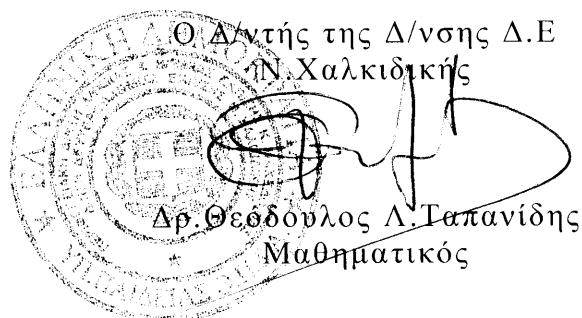 Ο Δ/ντής της Δ/νσης Δ.Ε
Ν.Χαλκιδικής
Δρ.Θεόδουλος Λ.Ταπανίδης
Μαθηματικός
ΕΛΛΗΝΙΚΗ